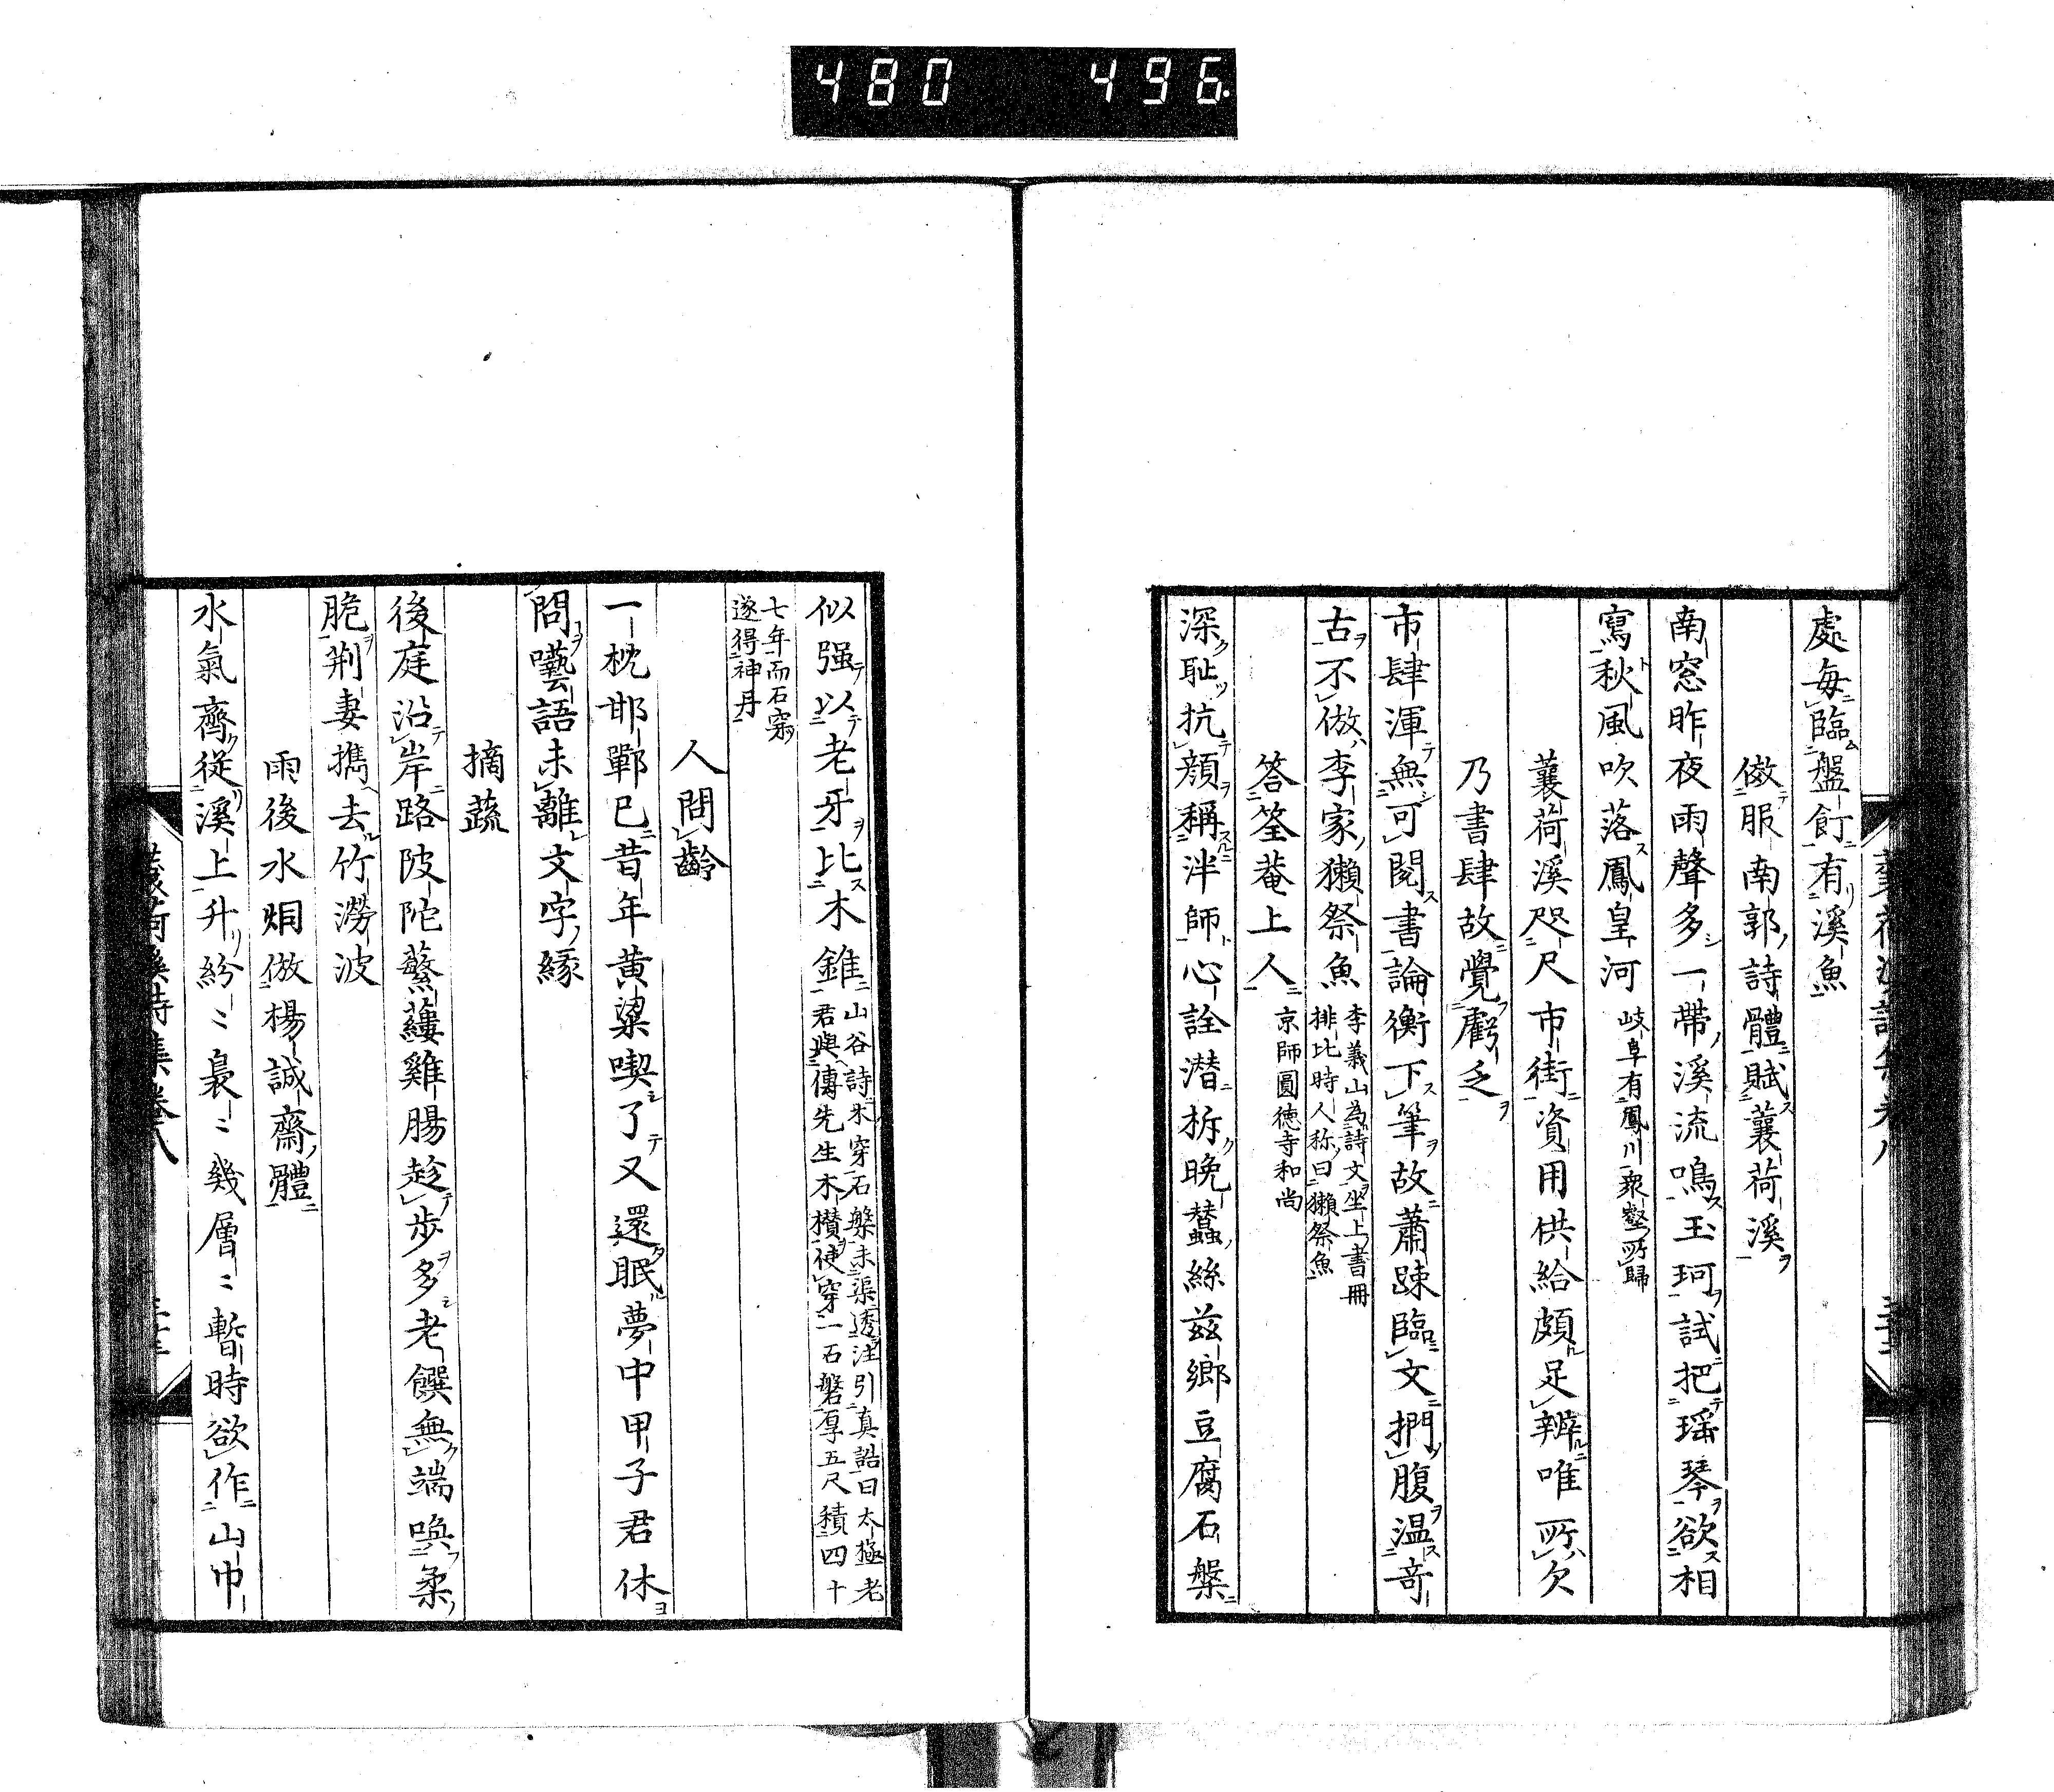 480 496.
處每臨盤飣有溪魚
倣服南郭詩體賦蘘荷溪
南窓昨夜雨聲多一帶溪流鳴玉珂試把瑶琴欲相
寫秋風吹落鳳皇河 岐阜有鳳川衆壑所歸
蘘荷溪咫尺市街資用供給頗足辨唯所欠
乃書肆故覺虧乏
市肆渾無可閲書論衡下筆故蕭踈臨文捫腹温奇
古不倣李家獺祭魚 李義山為詩文坐上書冊
排比時人称曰獺祭魚
答筌菴上人 京師圓徳寺和尚
深耻抗顔稱泮師心詮潜析晚蠶絲兹鄉豆腐石槃
似强以老牙比木錐 山谷詩木穿石槃未渠透注引真誥曰太極老
君與傳先生木攅使穿一石磐厚五尺積四十
七年而石穿
遂得神丹
人問齡
一枕邯鄲已昔年黄粱喫了又還眠夢中甲子君休
問囈語未離文字緣
摘蔬
後庭沿岸路陂陀蘩蔞雞腸趁歩多老饌無端喚柔
脆荆妻擕去竹澇波
雨後水烟倣楊誠齋體
水氣齊從溪上升紛〻裊〻幾層〻暫時欲作山巾
蘘荷溪詩集卷八